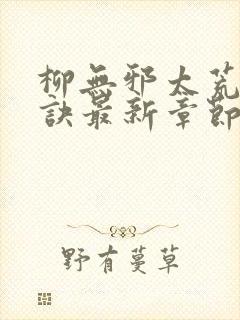 柳無邪太荒
訣最新章節
野有蔓草